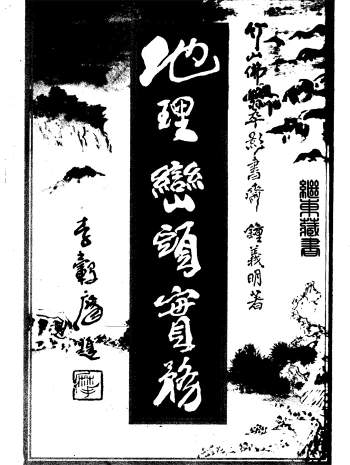 竹山佛 影書齋 鐘義明著
地理巒頭實務
李轂摩題
繼東藏書